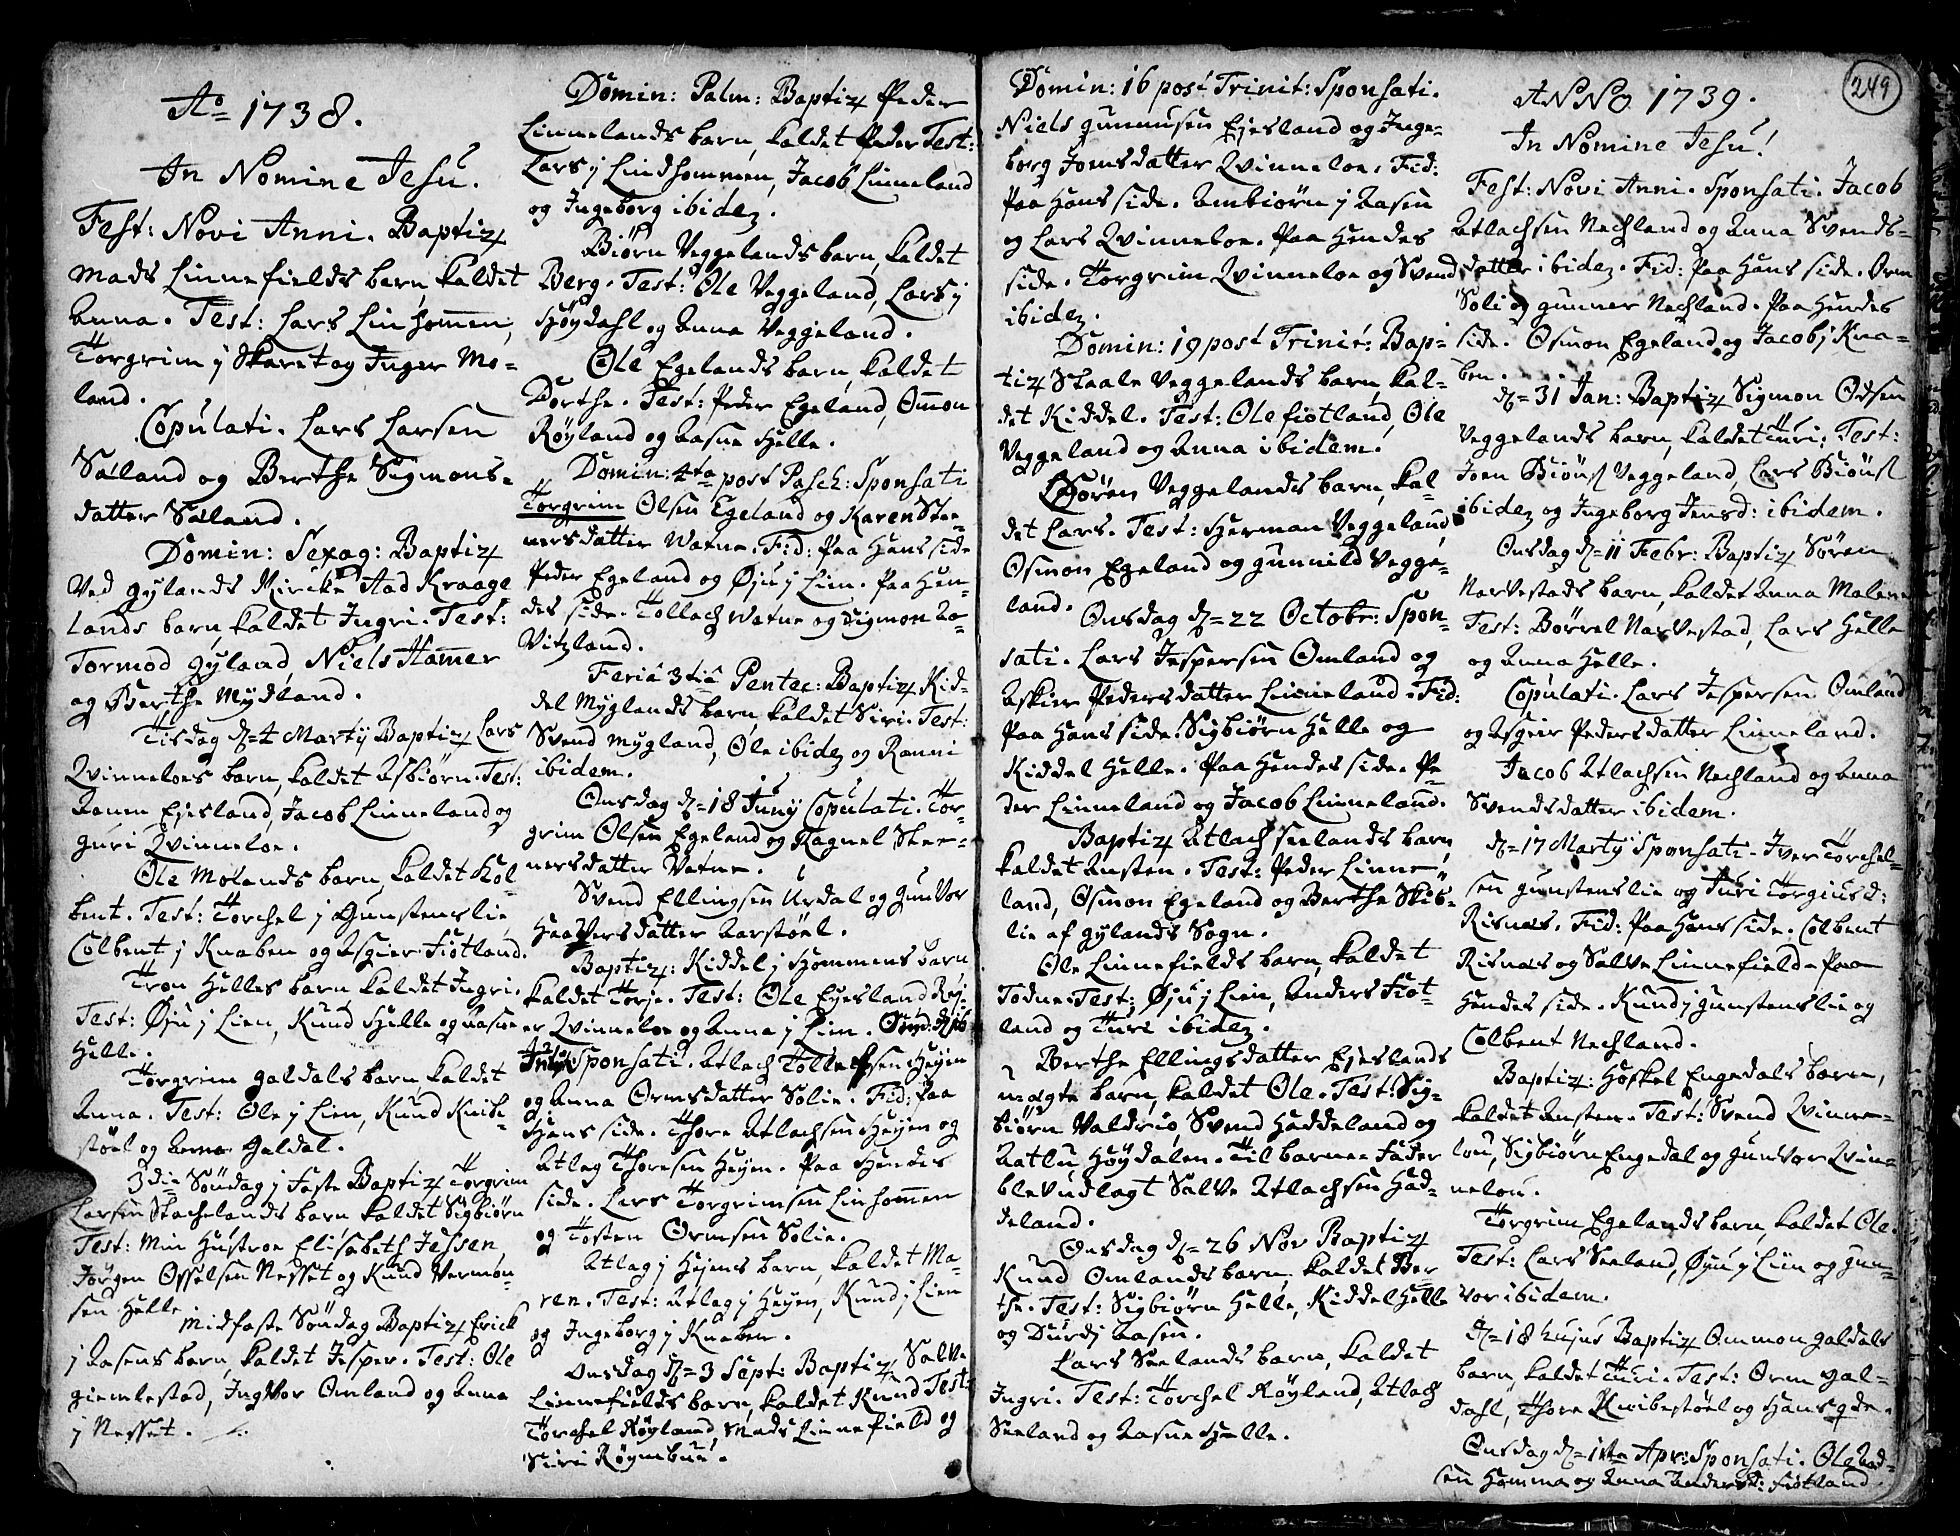 Ao 1738.
In Nomine Jesu.
Fest: Novi Anni. Baptiz
Mads Linnefields barn, kaldet
Anna. Test: Lars Linhommen,
Torgrim j Skaret og Inger Mo-
land.
Copulati. Lars Larsen
Sæland og Berthe Sigmons-
datter Sæland.
Domin: Sexag: Baptiz
Ved Gylands Kircke Aad Kraage
lands barn, kaldet Ingri. Test:
Tormod Gyland, Niels Hamer
og Berthe Mydland.
Tisdag d= 4 Martij Baptiz Lars
Qvinneloes barn, kaldet Asbiørn. Test:
Aanen Ejesland, Jacob Linneland og
Guri Qvinneloe.
Ole Molands barn, kaldet Kol-
bent. Test: Torchel j Gunstenslie,
Colbent j Knaben og Asgier Fiotland.
Tron Helles barn kaldet Ingri.
Test: Øju j Lien, Knud Helle og Aasne
Helle.
Torgrim Galdals barn, kaldet
Anna. Test: Ole j Lien, Knud Knibe-
støel og Anna Galdal.
3die Søndag j Faste Baptiz Torgrim
Larsen Stachelands barn kaldet Sigbiørn
Test: Min Hustroe Elisabeth Jessen,
Jørgen Osselsen Nesset og Knud Vermon-
sen Helle
Midfaste Søndag Baptiz Erick
j Aasens barn, kaldet Jesper. Test: Ole
Giemlestad, Ingvor Omland og Anna
j Nesset.
Domin: Palm: Baptiz Peder
Linnelands barn, kaldet Peder Test:
Lars j Lindhommen, Jacob Linneland
og Ingeborg ibidez.
Biørn Veggelands barn, kaldet
Berg. Test: Ole Veggeland, Lars j
Høydahl og Anna Veggeland.
Ole Egelands barn, kaldet
Dorthe. Test: Peder Egeland, Omon
Røyland og Aasne Helle.
Domin: 4ta post Pasch: Sponsati
Torgrim Olsen Egeland og Karen Stee-
nersdatter Watne. Fid: Paa Hans side
Peder Egeland og Øju j Lien. Paa Hen-
des side. Tollach Watne og Sigmon Lo-
Vitzland.
Feria 3tia Pentec: Baptiz Kid-
del Myglands barn, kaldet Siri. Test:
Svend Mygland, Ole ibidez og Ranni
ibidem.
Onsdag d= 18 Junij Copulati. Tor-
grim Olsen Egeland og Ragnel Stee-
nersdatter Vatne.
Svend Ellingsen Urdal og Gunvor
Haaversdatter Aarstøel.
Baptiz: Kiddel j Hommens barn
kaldet Torje. Test: Ole Ejesland Rej-
er Qvinneloe og Anna j Lien. Onsd: d= 16
Julij Sponsati. Atlach Tollefsen Heyen
og Anna Ormsdatter Solie. Fid: Paa
Hans side. Thore Atlachsen Heyen og
Atlag Thoresen Heyen. Paa Hendes
side. Lars Torgrimsen Linhommen
og Tosten Ormsen Solie.
Atlag j Heyens barn, kaldet Ma-
ren. Test: Atlag j Heyen, Knud j Lien
og Ingeborg j Knaben.
Onsdag d= 3 Sept: Baptiz Salve
Linnefields barn, kaldet Knud Test:
Torchel Røyland, Mads Linnefield og
Siri Røynebue.
Domin: 16 post Trinit: Sponsati.
Niels Gunnusen Ejesland og Inge-
borg Joensdatter Qvinneloe. Fid:
Paa Hans side. Anbiørn j Aasen
og Lars Qvinneloe. Paa Hendes
side. Torgrim Qvinneloe og Svend
ibidez.
Domin: 19 post Trinit: Bap-
tiz Staale Veggelands barn, kal-
det Kiddel. Test: Ole Fiotland, Ole
Veggeland og Anna ibidem.
Søren Veggelands barn, kal-
det Lars. Test: Herman Veggeland,
Osmon Egeland og Gunnild Vegge-
land.
Onsdag d= 22 Octobr: Spon-
sati. Lars Jespersen Omland og
Askier Pedersdatter Linneland. Fid:
Paa Hans side. Sigbiørn Helle og
Kiddel Helle. Paa Hendes side. Pe-
der Linneland og Jacob Linneland.
Baptiz Atlach Seelands barn
kaldet Austen. Test: Peder Linne-
land, Osmon Egeland og Berthe Skib-
lie af Gylands Sogn.
Ole Linnefields barn, kaldet
Todne. Test: Øju j Lien, Anders Fiot-
land og Turi ibidez.
Berthe Ellingsdatter Ejeslands
uægte barn, kaldet Ole. Test: Sig-
biørn Valdrio, Svend Haddeland og
Aatlu Høydalen. Til barne Fader
blev udlagt Salve Atlachsen Had-
deland.
Onsdag d= 26 Nov Baptiz
Knud Omlands barn, kaldet Ber
the. Test: Sigbiørn Helle, Kiddel Helle
og Durdj Aasen.
Lars Seelands barn, kaldet
Ingri. Test: Torchel Røyland, Atlach
Seeland og Aasne Helle.
249
ANNO 1739.
In Nomine Jesu!
Fest: Novi Anni. Sponsati. Jacob
Atlachsen Nechland og Anna Svends-
datter ibidez. Fid: Paa Hans side. Orm
Soli og Gunner Nechland. Paa Hendes
side. Osmon Egeland og Jacob j Knaa-
ben.
d= 31 Jan: Baptiz Sigmon Odsen
Veggelands barn, kaldet Turi. Test:
Joen Biøns Veggeland, Lars Biøns
ibidez og Ingeborg Jensd: ibidem.
Onsdag d= 11 Febr: Baptiz Søren
Narvestads barn, kaldet Anna Malene
Test: Børrel Narvestad, Lars Helle
og Anna Helle.
Copulati. Lars Jespersen Omland
og Asgier Pedersdatter Linneland.
Jacob Atlachsen Nechland og Anna
Svendsdatter ibidem.
d= 17 Martij Sponsati. Iver Torchel-
sen Gunstenslie og Turi Torgiusd:
Risnæs. Fid: Paa Hans side. Colbent
Risnæs og Salve Linnefield. Paa
Hendes side. Knud j Gunstenslie og
Colbent Nechland.
Baptiz: Hoskel Engedals barn,
kaldet Austen. Test: Svend Qvinne-
lou, Sigbiørn Engedal og Gunvor Qvin-
nelou.
Torgrim Egelands barn, kaldet Ole.
Test: Lars Seeland, Øju j Lien og Gun-
vor ibidem.
d= 18 hujus Baptiz Ommon Galdals
barn, kaldet Turi. Test: Orm Gal-
dahl, Thore Knibestøel og Hans qde.
Onsdag d= 1ste Apr: Sponsati. Ole Aad-
sen Homme og Anna Andersd: Fiotland.